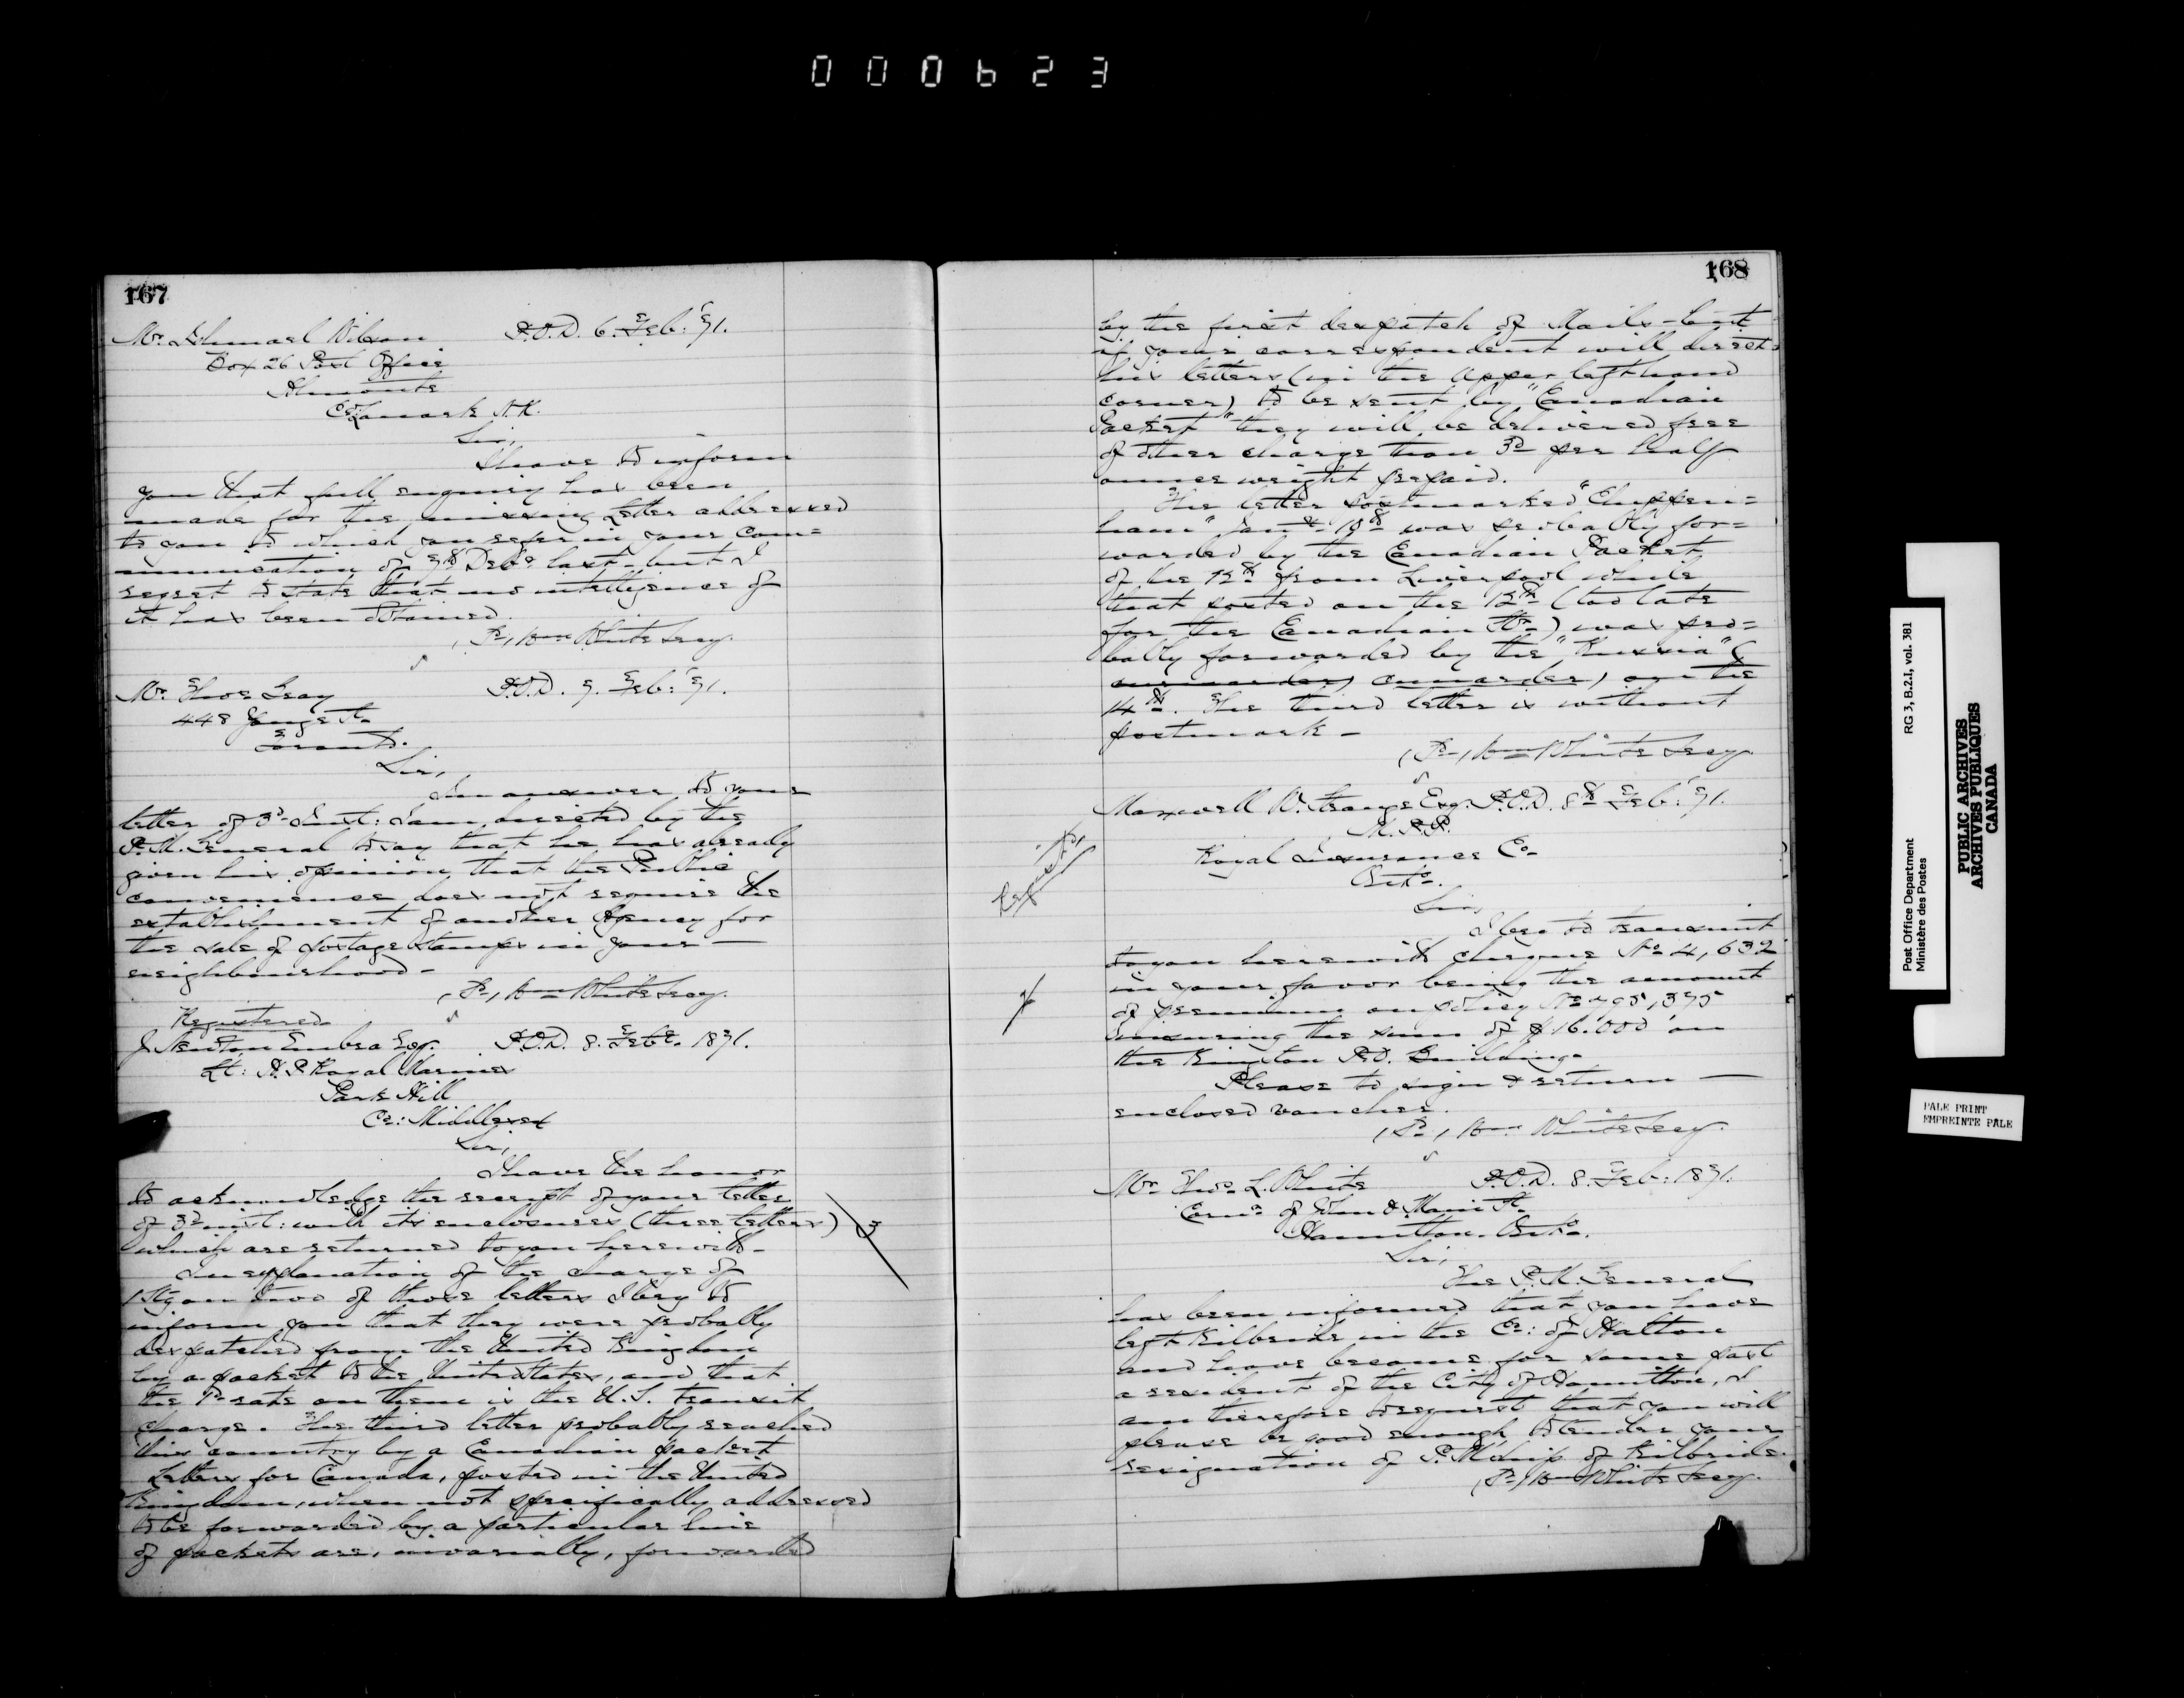 000623
167
Mr. Ishmael Wilson P.O.D. 6. Feb: '71.
Box 26 Post Office
Almonte
Co: Lanark N.R.
Sir,
I have to inform
you that full enquiry has been
made for the missing letter addressed
to you to which you refer in your Com=
munication of 7th Decr last - but I
regret to state that no intelligence of
it has been obtained.
(Sd) Wm White Secy.
Mr. Thos Gray P.O.D. 7. Feb: '71.
448 Yonge St.
Toronto.
Sir,
In answer to your
letter of 3d Inst: I am directed by the
P.M. General to say that he has already
given his opinion that the Public
convenience does not require the
establishment of another Agency for
the sale of postage stamps in your —
neighbourhood -
(Sd) Wm White Secy.
Registered
J. Newton Esq. P.O.D. 8. Feby. 1871.
Lt: H.P. Royal Marines
Park Hill
Co: Middlesex
Sir,
I have the honor
to acknowledge the receipt of your letter
of 3d inst: with its enclosures (three letters) 3
which are returned to you herewith -
In explanation of the charge of
on two of those letters I beg to
inform you that they were probably
despatched from the United Kingdom
by a packet to the United States, and that
the rate on them is the U.S. transit
charge. The third letter probably reached
this country by a Canadian packet
Letters for Canada, posted in the United
Kingdom, when not specifically addressed
to be forwarded by a particular line
of packets are, invariably, forwarded
168
by the first despatch of Mails - but
if your correspondent will direct
his letters (in the upper left hand
corner) to be sent by "Canadian
Packet" they will be delivered free
of other charge than 3d per half
ounce weight prepaid.
The letter postmarked "Chippen=
ham" Jany 10th was probably for=
warded by the Canadian Packet
of the 12th from Liverpool while
that posted on the 12th (too late
for the Canadian Str) was pro=
bably forwarded by the "Russia" (
cunarder) on the
14th. The third letter is without
postmark -
(Sd) Wm White Secy.
Maxwell W. Strange Esq. P.O.D. 8th Feb: '71.
M.P.P.
Royal Insurance Co.
Onto.
Sir,
I beg to transmit
to you herewith cheque No 4,632
in your favor being the amount
of premium on policy No 795,375
insuring the sum of $16.000 on
the Kingston P.O. Building.
Please to sign & return —
enclosed voucher.
(Sd) Wm White Secy.
Mr. Thos. L. White P.O.D. 8. Feb: 1871.
Corner of John & Main St.
Hamilton. Onto.
Sir,
The P.M. General
has been informed that you have
left Kilbride in the Co: of Halton
and have become for some past
a resident of the City of Hamilton, I
am therefore to request that you will
please be good enough to tender your
resignation of P.M'ship of Kilbride.
(Sd) Wm White Secy.
Post Office Department RG 3, B.2.I, vol. 381
Ministère des Postes
PUBLIC ARCHIVES
ARCHIVES PUBLIQUES
CANADA
PALE PRINT
EMPREINTE PALE